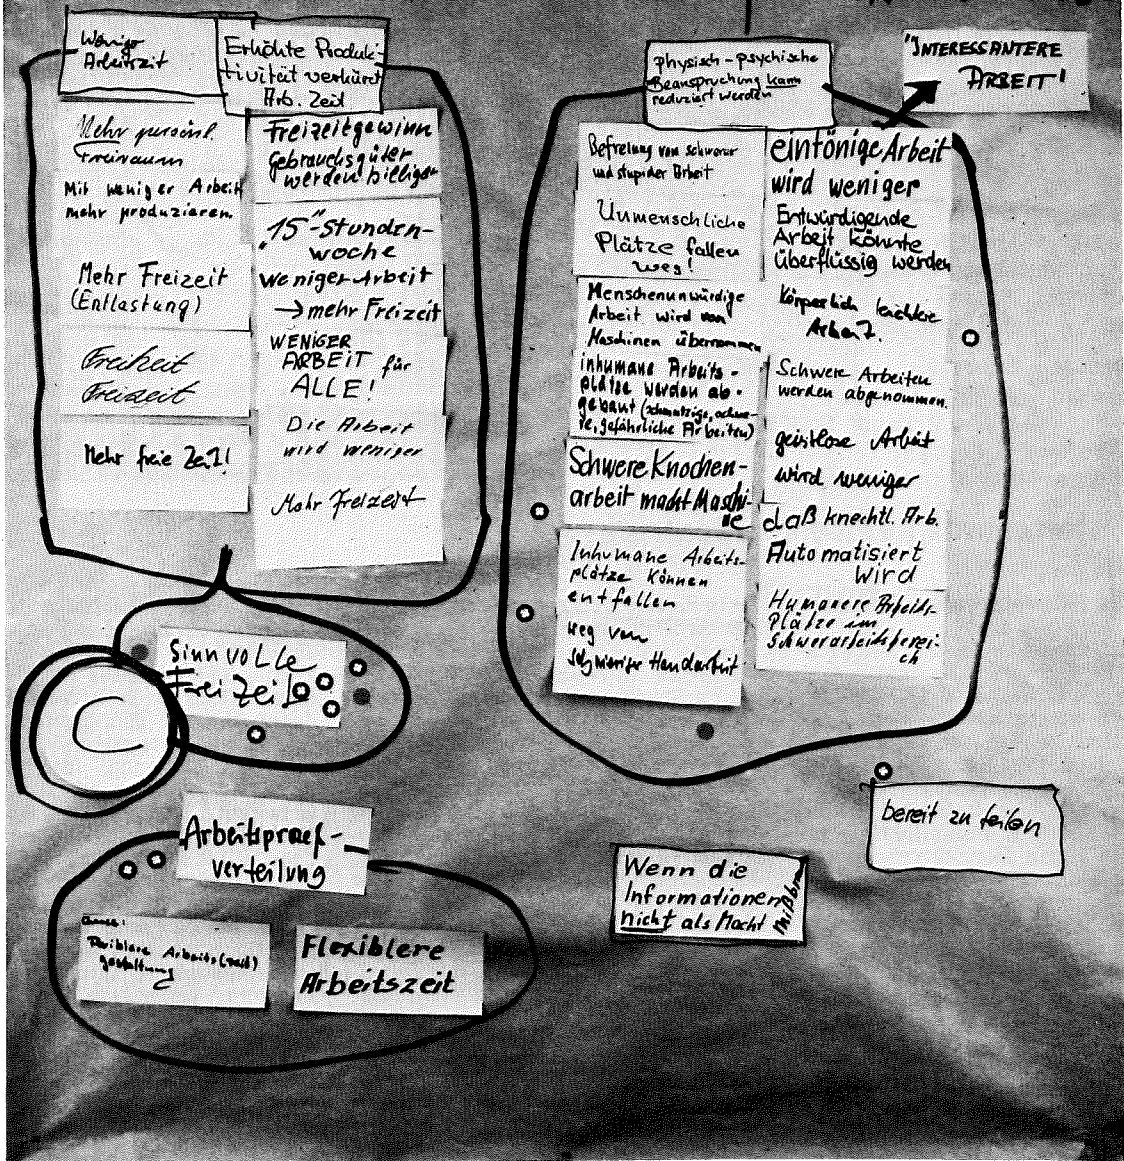 Wenige
Arbeitszeit
Erhöhte Produk-
tivität verkürzt
Arb. Zeit
Mehr persönl.
Freiraum
Mit weniger Arbeit
mehr produzieren.
Mehr Freizeit
(Entlastung)
Freiheit
Freizeit
Mehr freie Zeit!
Freizeitgewinn
Gebrauchsgüter
werden billiger
"15"-Stunden-
woche
weniger Arbeit
→ mehr Freizeit
WENIGER
ARBEIT für
ALLE!
Die Arbeit
wird weniger
Mehr Freizeit
Sinnvolle
Freizeit
C
Arbeitsprozeß-
verteilung
Flexiblere Arbeits(zeit)
gestaltung
Flexiblere
Arbeitszeit
physisch-psychische
Beanspruchung kann
reduziert werden
"INTERESSANTERE
ARBEIT"
Befreiung von schwerer
und stupider Arbeit
Unmenschliche
Plätze fallen
weg!
Menschenunwürdige
Arbeit wird von
Maschinen übernommen
inhumane Arbeits-
plätze werden ab-
gebaut (schmutzige, schwe-
re, gefährliche Arbeiten)
Schwere Knochen-
arbeit macht Maschi-
ne
Inhumane Arbeits-
plätze können
entfallen
weg von
schwieriger Handarbeit
eintönige Arbeit
wird weniger
Entwürdigende
Arbeit könnte
überflüssig werden
Körperlich leichtere
Arbeit.
Schwere Arbeiten
werden abgenommen.
geistlose Arbeit
wird weniger
daß knechtl. Arb.
Automatisiert
wird
Humanere Arbeits-
Plätze im
Schwerarbeitsberei-
ch
bereit zu teilen
Wenn die
Informationen
nicht als Macht mißbr